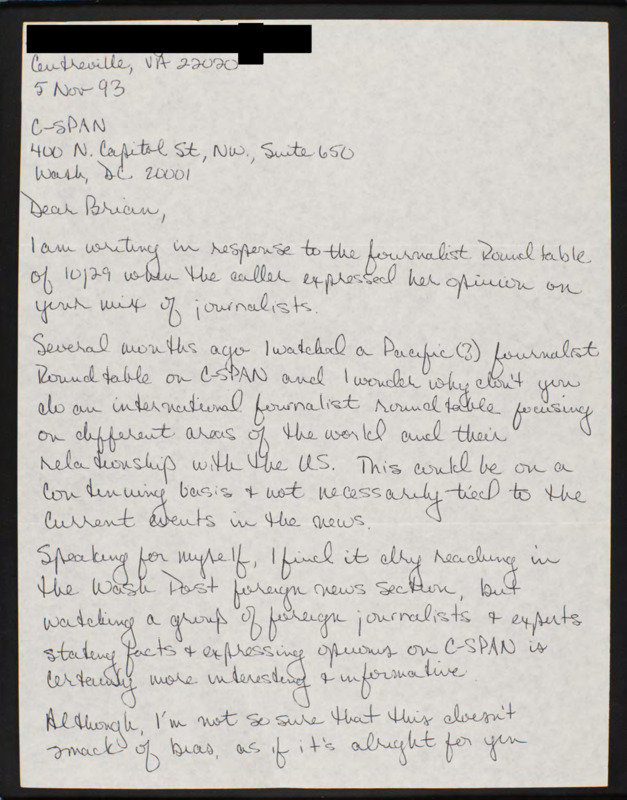 Centreville, VA 22020
5 Nov 93
C-SPAN
400 N. Capitol St, NW., Suite 650
Wash, DC 20001
Dear Brian,
I am writing in response to the Journalist Roundtable
of 10/29 when the caller expressed her opinion on
your mix of journalists.
Several months ago I watched a Pacific(?) Journalist
Roundtable on C-SPAN and I wonder why don't you
do an international journalist roundtable focusing
on different areas of the world and their
relationship with the US. This could be on a
continuing basis & not necessarily tied to the
current events in the news.
Speaking for myself, I find it dry reading in
the Wash Post foreign news section, but
watching a group of foreign journalists & experts
stating facts & expressing opinions on C-SPAN is
certainly more interesting & informative.
Although, I'm not so sure that this doesn't
smack of bias, as if it's alright for you